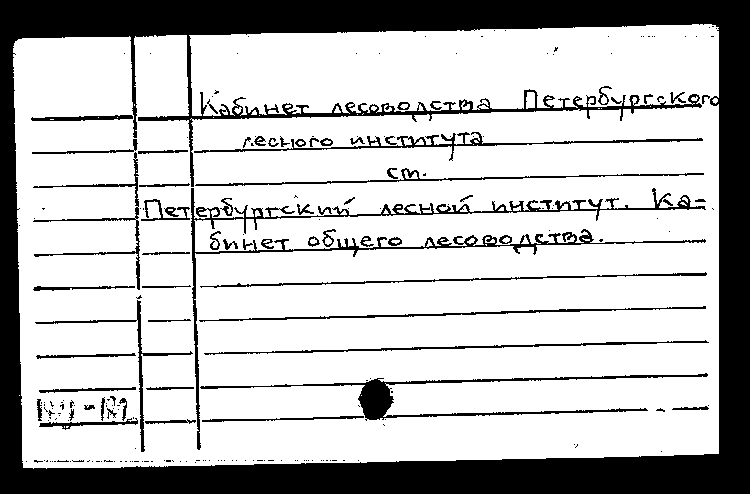 Кабинет лесоводства Петербургского
лесного института
см.
Петербургский лесной институт. Ка=
бинет общего лесоводства.